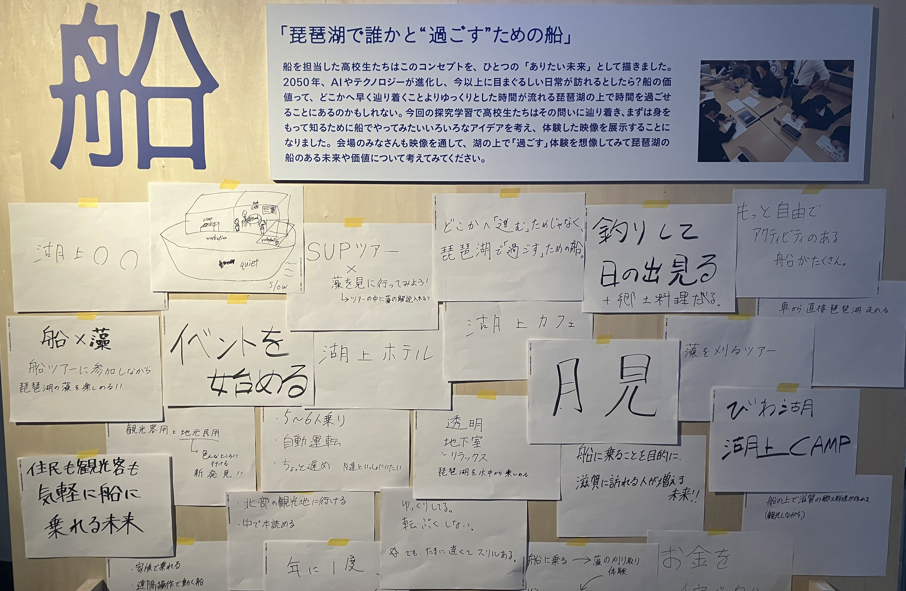 船
「琵琶湖で誰かと“過ごす”ための船」
船を担当した高校生たちはこのコンセプトを、ひとつの「ありたい未来」として描きました。
2050年、AIやテクノロジーが進化し、今以上に目まぐるしい日常が訪れるとしたら?船の価
値って、どこかへ早く辿り着くことよりゆっくりとした時間が流れる琵琶湖の上で時間を過ごせ
ることにあるのかもしれない。今回の探究学習で高校生たちはその問いに辿り着き、まずは身を
もって知るために船でやってみたいいろいろなアイデアを考え、体験した映像を展示することに
なりました。会場のみなさんも映像を通して、湖の上で「過ごす」体験を想像してみて琵琶湖の
船のある未来や価値について考えてみてください。
湖上〇〇
quiet
slow
SUPツアー
×
藻を見に行ってみよう!
どこかへ「進む」ためじゃなく、
琵琶湖で「過ごす」ための船。
釣りして
日の出見る
+ 郷土料理
もっと自由で
アクティビティのある
船がたくさん。
車から直接琵琶湖走れる
船×藻
船ツアーに参加しながら
琵琶湖の藻を楽しめる!!
イベントを
始める
湖上ホテル
湖上カフェ
月見
藻を刈るツアー
びわ湖
湖上CAMP
観光客用 地元民用
新発見!!
・5〜6人乗り
・自動運転
・ちょっと遅め
透明
地下室
リラックス
琵琶湖を水中から楽しめる
船に乗ることを目的に
滋賀に訪れる人が増える
未来!!
住民も観光客も
気軽に船に
乗れる未来
・北部の観光地に行ける
・中で本読める
ゆっくりしてる。
転ぷくしない。
でもたまに速くてスリルある。
船の上で滋賀の郷土料理が食べれる
(観光しながら)
・家族で乗れる
・遠隔操作で動く船
年に1度
船に乗る → 藻の刈り取り
体験
お金を